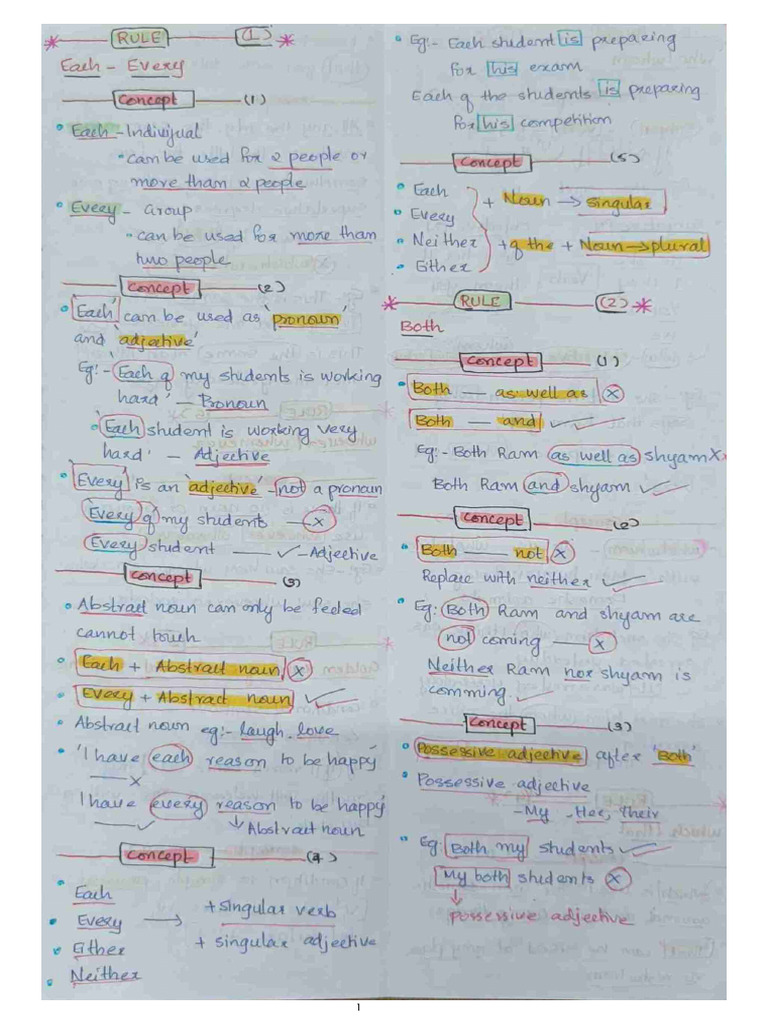 * RULE (1) *
Each - Every
Concept (1)
• Each - Indivijual
• can be used for 2 people or
more than 2 people
• Every - Group
• can be used for more than
two people
Concept (2)
• 'Each' can be used as 'pronoun'
and 'adjective'
Eg:- (Each of my students is working
hard' - Pronoun
• 'Each student is working very
hard' - Adjective
• 'Every' is an 'adjective' - not a pronoun
'Every of my students — x
Every student — ✓ - Adjective
Concept (3)
• Abstract noun can only be feeled
cannot touch
• Each + Abstract noun x
• Every + Abstract noun ✓
• Abstract noun eg:- laugh, love
• 'I have each reason to be happy
— x
I have every reason to be happy
— ✓ ↓ Abstract noun
Concept (4)
• Each
• Every → + singular verb
• Either + singular adjective
• Neither
• Eg:- Each student is preparing
for his exam
Each of the students is preparing
for his competition
Concept (5)
• Each + Noun → singular
• Every
• Neither + of the + Noun → plural
• Either
* RULE (2) *
Both
Concept (1)
• Both — as well as x
Both — and ✓ ✓
Eg:- Both Ram as well as shyam x
Both Ram and shyam ✓
Concept (2)
• Both — not x
Replace with neither ✓
• Eg: Both Ram and shyam are
not coming — x
Neither Ram nor shyam is
comming ✓
Concept (3)
• Possessive adjective after 'Both'
• Possessive adjective
- My, Her, Their
• Eg: Both my students ✓
My both students x
↓ possessive adjective
1